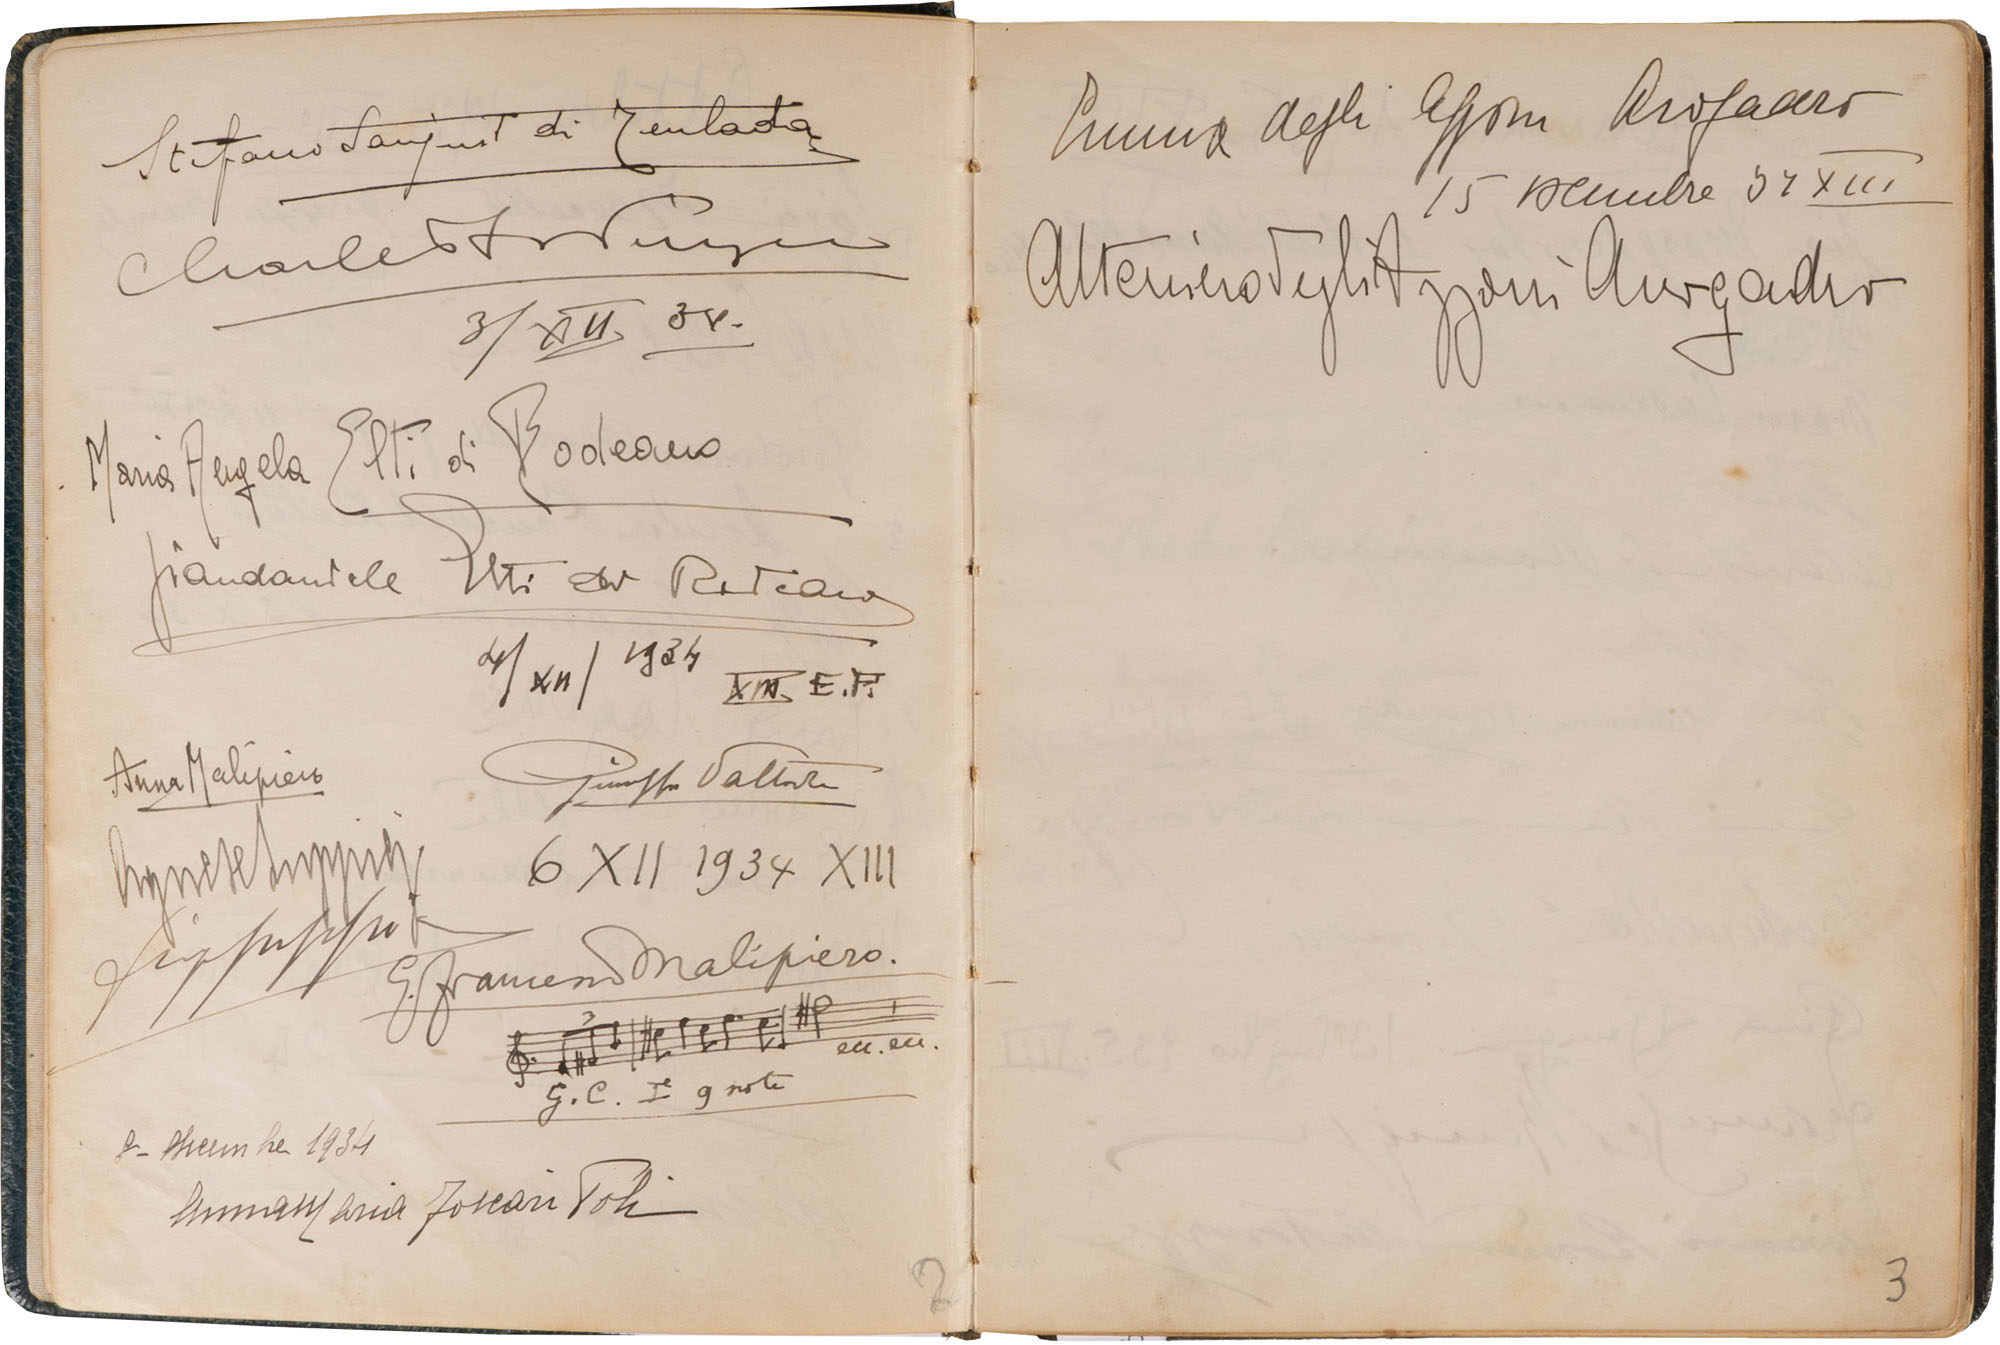 Stefano Sanjust di Teulada
Charles
3/XII 34.
Maria Angela Elti di Rodeano
Giandaniele Elti di Rodeano
4/XII/1934 XIII E.F.
Anna Malipiero
Giuseppe
Agnese
6 XII 1934 XIII
G. Francesco Malipiero.
3
ecc. ecc.
G. C. Iª 9 note
8- dicembre 1934
Anna Maria Foscari Poli
2
Emma degli Azzoni Avogadro
15 dicembre 34 XIII
Alteniero degli Azzoni Avogadro
3